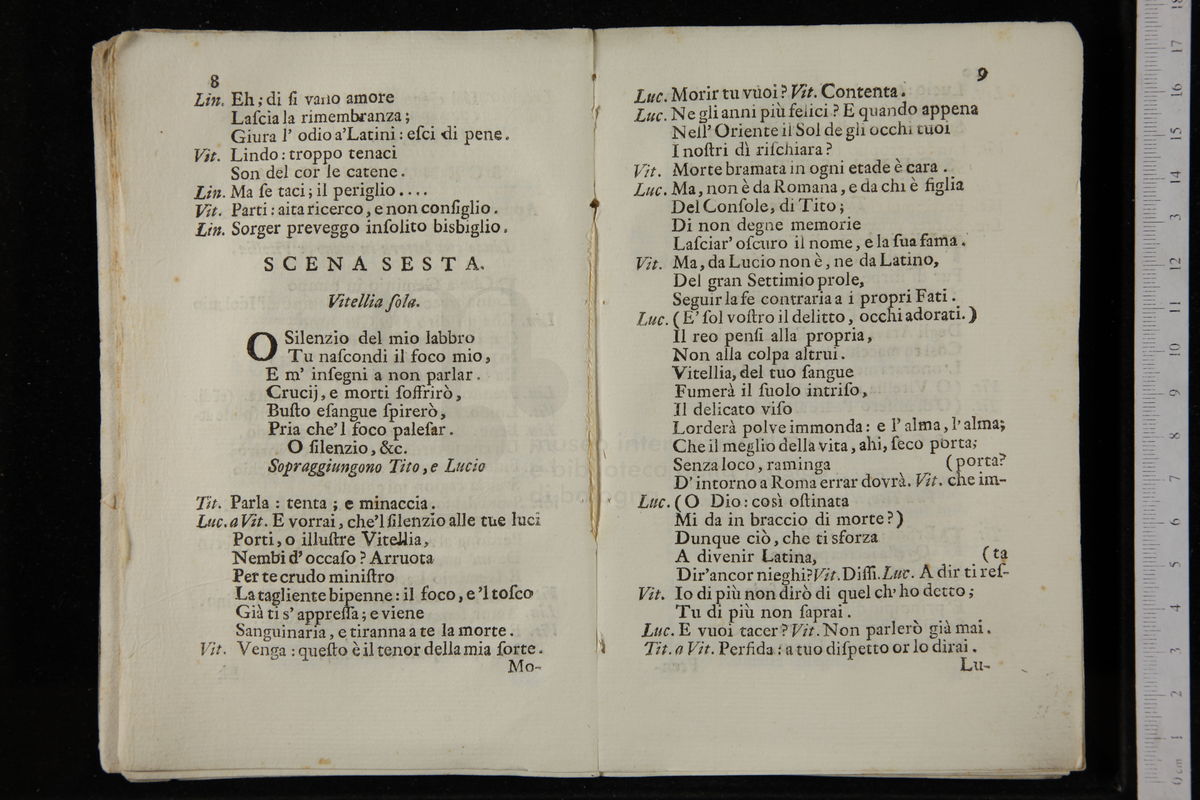 8
Lin. Eh; di ſi vano amore
Laſcia la rimembranza;
Giura l' odio a'Latini: eſci di pene.
Vit. Lindo: troppo tenaci
Son del cor le catene.
Lin. Ma ſe taci; il periglio....
Vit. Parti: aita ricerco, e non conſiglio.
Lin. Sorger preveggo inſolito bisbiglio.
SCENA SESTA.
Vitellia ſola.
O Silenzio del mio labbro
Tu naſcondi il foco mio,
E m' inſegni a non parlar.
Crucij, e morti ſoffrirò,
Buſto eſangue ſpirerò,
Pria che'l foco paleſar.
O ſilenzio, &c.
Sopraggiungono Tito, e Lucio
Tit. Parla: tenta; e minaccia.
Luc. a Vit. E vorrai, che'l ſilenzio alle tue luci
Porti, o illuſtre Vitellia,
Nembi d' occaſo? Arruota
Per te crudo miniſtro
La tagliente bipenne: il foco, e 'l toſco
Già ti s' appreſſa; e viene
Sanguinaria, e tiranna a te la morte.
Vit. Venga: queſto è il tenor della mia ſorte.
Mo-
9
Luc. Morir tu vuoi? Vit. Contenta.
Luc. Ne gli anni più felici? E quando appena
Nell' Oriente il Sol de gli occhi tuoi
I noſtri dì riſchiara?
Vit. Morte bramata in ogni etade è cara.
Luc. Ma, non è da Romana, e da chi è figlia
Del Conſole, di Tito;
Di non degne memorie
Laſciar' oſcuro il nome, e la ſua fama.
Vit. Ma, da Lucio non è, ne da Latino,
Del gran Settimio prole,
Seguir la fe contraria a i propri Fati.
Luc. (E' ſol voſtro il delitto, occhi adorati.)
Il reo penſi alla propria,
Non alla colpa altrui.
Vitellia, del tuo ſangue
Fumerà il ſuolo intriſo,
Il delicato viſo
Lorderà polve immonda: e l' alma, l' alma;
Che il meglio della vita, ahi, ſeco porta;
Senza loco, raminga (porta?
D' intorno a Roma errar dovrà. Vit. che im-
Luc. (O Dio: così oſtinata
Mi da in braccio di morte?)
Dunque ciò, che ti sforza
A divenir Latina, (ta
Dir' ancor nieghi? Vit. Diſſi. Luc. A dir ti reſ-
Vit. Io di più non dirò di quel ch' ho detto;
Tu di più non ſaprai.
Luc. E vuoi tacer? Vit. Non parlerò già mai.
Tit. a Vit. Perfida: a tuo diſpetto or lo dirai.
Lu-